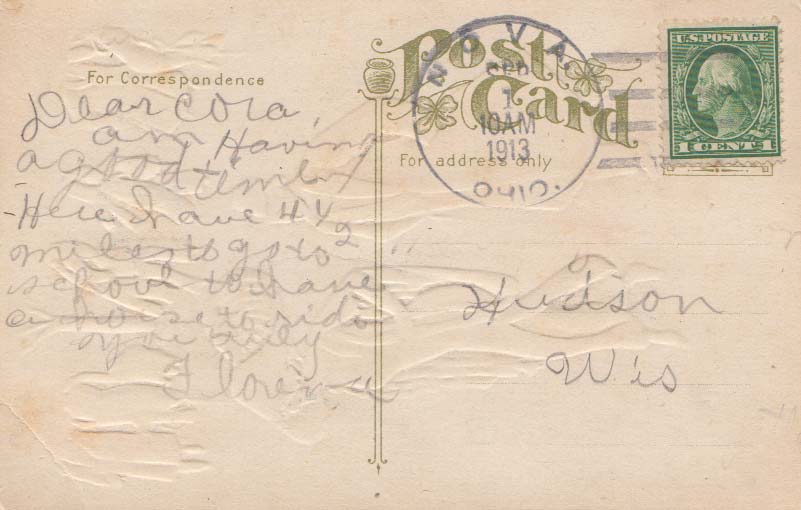 Post Card
For Correspondence
Dear Cora,
am Having
a good time
Here I have 4 1/2
miles to go to
school to have
a horse to ride
Florena
NOVA
SEP
1
10AM
1913
OHIO.
For address only
U.S. POSTAGE
1 CENT 1
Hudson
Wis